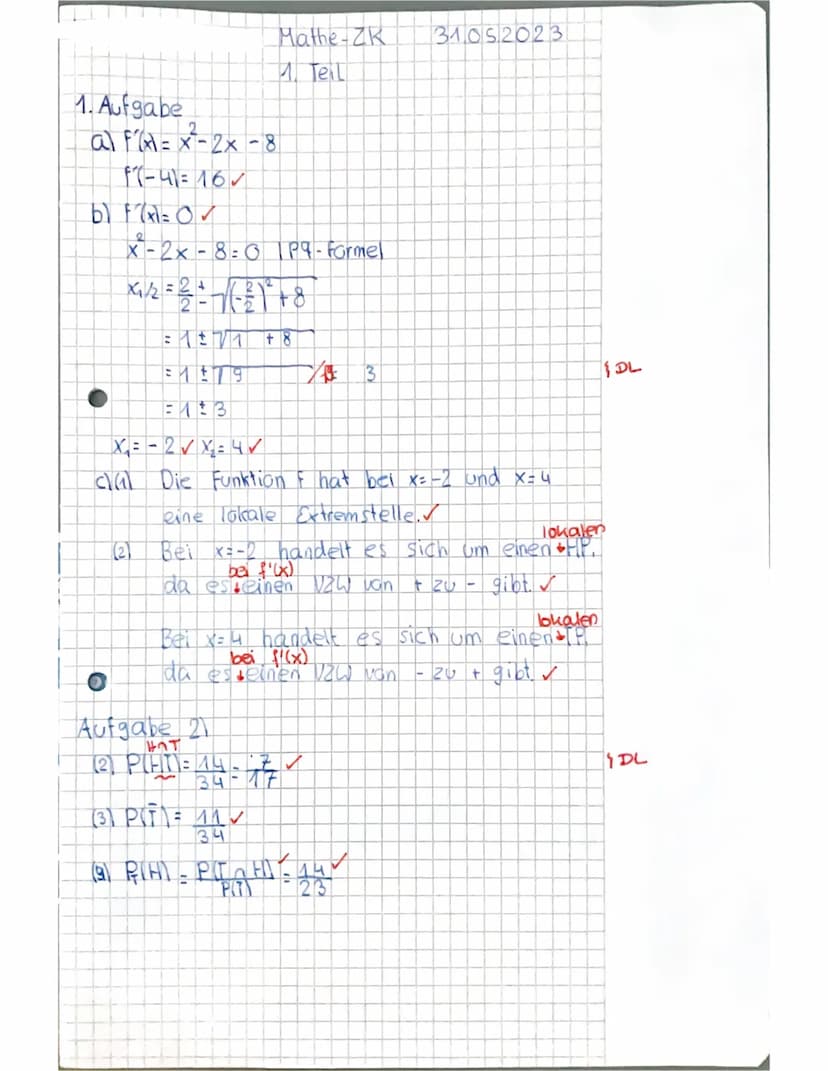 Mathe-ZK 31.05.2023
1. Teil
1. Aufgabe
a) f'(x) = x² - 2x - 8
f'(-4) = 16 ✓
b) f'(x) = 0 ✓
x² - 2x - 8 = 0 | PQ-Formel
x₁/₂ = 2/2 ± √((-2/2)² + 8)
= 1 ± √(1 + 8)
= 1 ± √9 3 DL
= 1 ± 3
x₁ = -2 ✓ x₂ = 4 ✓
c)(1) Die Funktion f hat bei x=-2 und x=4
eine lokale Extremstelle. ✓
lokalen
(2) Bei x=-2 handelt es sich um einen HP,
bei f'(x)
da es einen VZW von + zu - gibt. ✓
lokalen
Bei x=4 handelt es sich um einen TP,
bei f'(x)
da es einen VZW von - zu + gibt. ✓
Aufgabe 2)
H∩T
(2) P(HT) = 14/34 = 7/17 ✓ DL
(3) P(T̄) = 11/34 ✓
P_T(H) = P(T∩H)/P(T) ✓ = 14/23 ✓